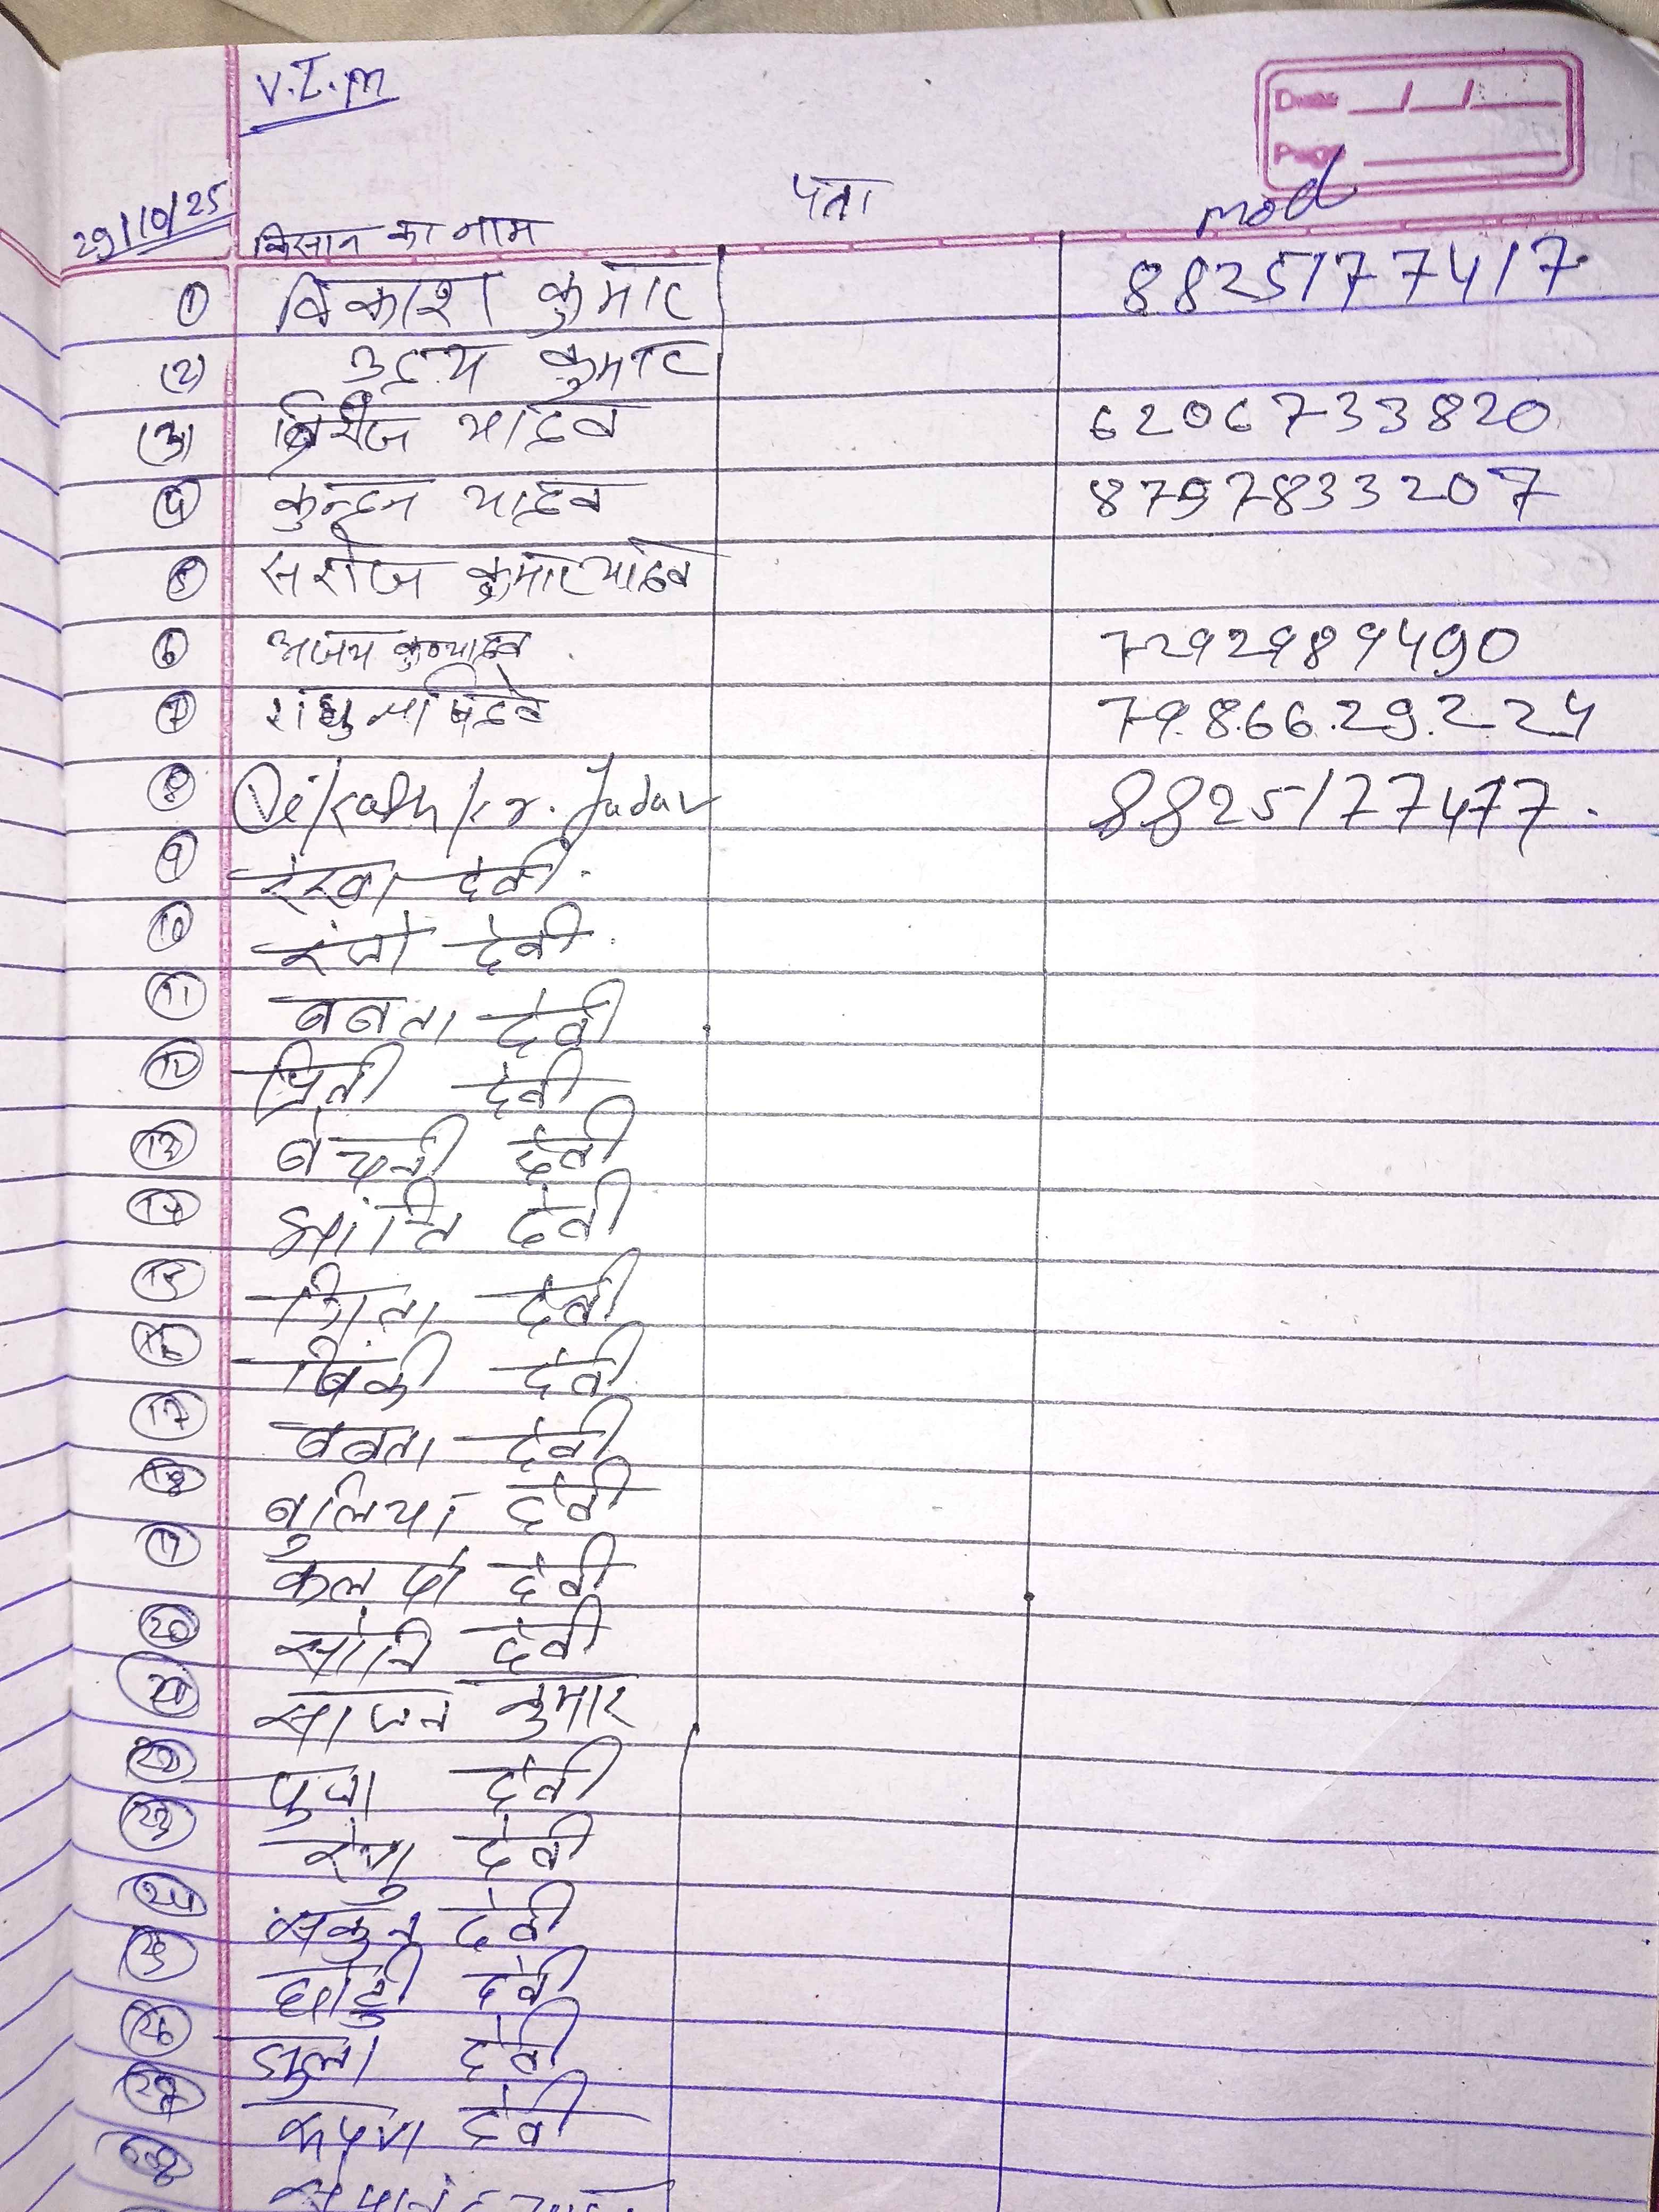 V.I.M
Date
Page
29/10/25 किसान का नाम पता mod
① विकाश कुमार 8825177417
(2) उदय कुमार
(3) यादव 6206733820
④ कुन्दन यादव 8797833207
⑤ सरोज कुमार यादव
⑥ अजय कु० यादव 7292989490
⑦ 79.8.66.29.2.24
⑧ Vikash kr. Yadav 8825177477.
⑨ रेखा देवी
⑩ रंजो देवी
⑪ बबता देवी
⑫ प्रिती देवी
⑬ बेचनी देवी
⑭ देवी
⑮ देवी
⑯ देवी
⑰ बबता देवी
⑱ बुलिया देवी
⑲ देवी
⑳ सोनि देवी
साजन कुमार
पुजा देवी
23 रेणु देवी
24 सकुन देवी
25 देवी
26 देवी
27 देवी
28